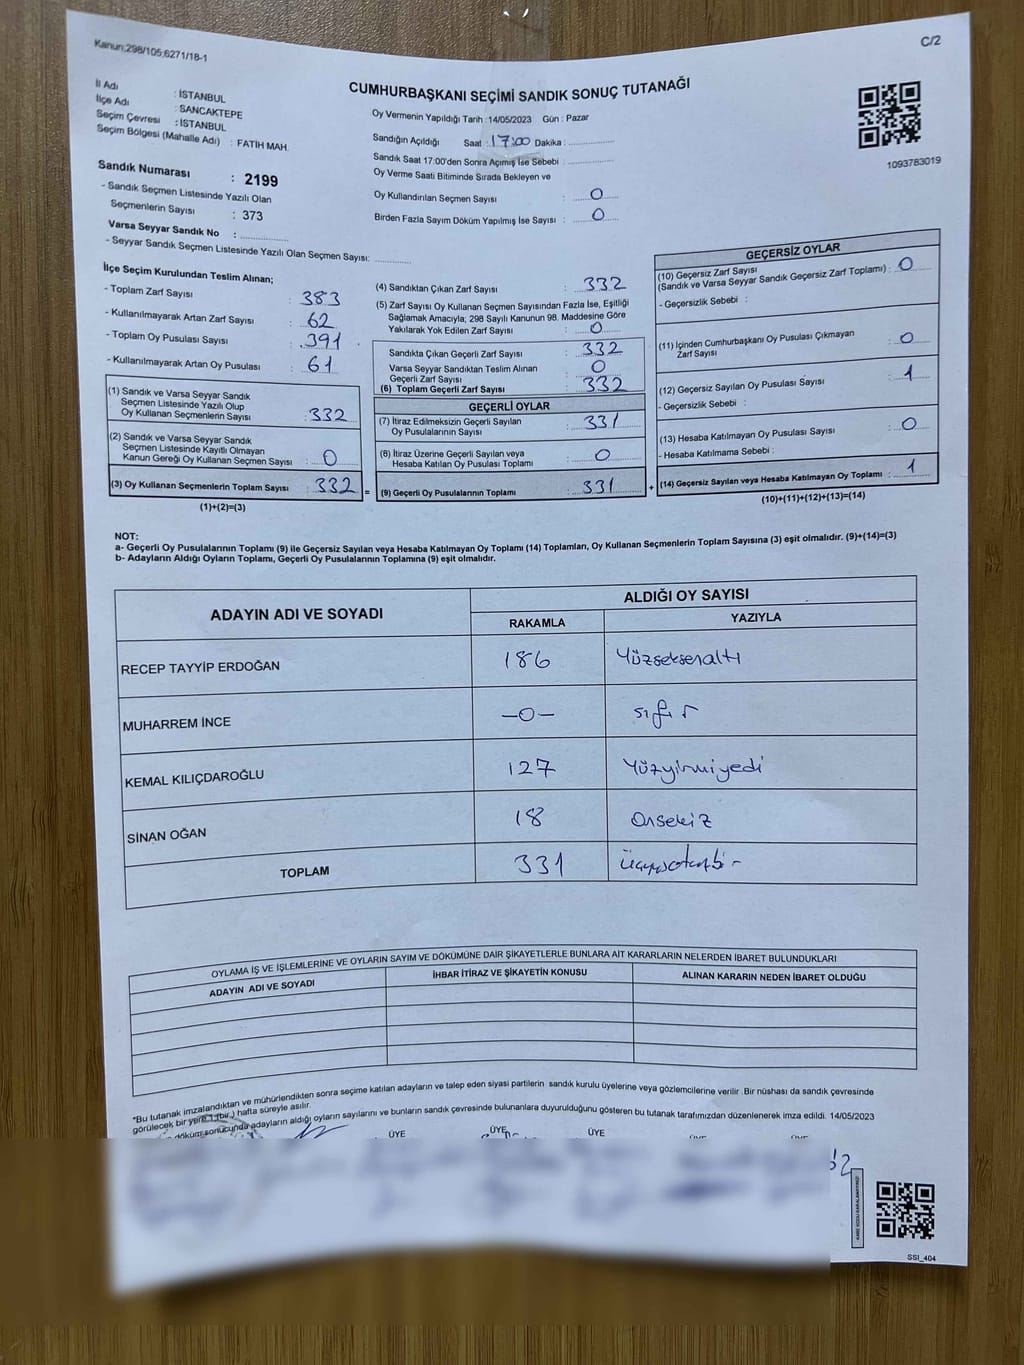 Kanun;298/105;6271/18-1
C/2
İl Adı : İSTANBUL
İlçe Adı : SANCAKTEPE
Seçim Çevresi : İSTANBUL
Seçim Bölgesi (Mahalle Adı) : FATİH MAH.
CUMHURBAŞKANI SEÇİMİ SANDIK SONUÇ TUTANAĞI
Oy Vermenin Yapıldığı Tarih :14/05/2023 Gün : Pazar
Sandığın Açıldığı Saat : 17:00 Dakika :
Sandık Saat 17:00'den Sonra Açımış İse Sebebi :
Oy Verme Saati Bitiminde Sırada Bekleyen ve
Oy Kullandırılan Seçmen Sayısı : 0
Birden Fazla Sayım Döküm Yapılmış İse Sayısı : 0
1093783019
Sandık Numarası : 2199
- Sandık Seçmen Listesinde Yazılı Olan
Seçmenlerin Sayısı : 373
Varsa Seyyar Sandık No :
- Seyyar Sandık Seçmen Listesinde Yazılı Olan Seçmen Sayısı:
İlçe Seçim Kurulundan Teslim Alınan;
- Toplam Zarf Sayısı : 383
- Kullanılmayarak Artan Zarf Sayısı : 62
- Toplam Oy Pusulası Sayısı : 391
- Kullanılmayarak Artan Oy Pusulası : 61
(1) Sandık ve Varsa Seyyar Sandık
Seçmen Listesinde Yazılı Olup
Oy Kullanan Seçmenlerin Sayısı : 332
(2) Sandık ve Varsa Seyyar Sandık
Seçmen Listesinde Kayıtlı Olmayan
Kanun Gereği Oy Kullanan Seçmen Sayısı : 0
(3) Oy Kullanan Seçmenlerin Toplam Sayısı : 332 =
(1)+(2)=(3)
(4) Sandıktan Çıkan Zarf Sayısı : 332
(5) Zarf Sayısı Oy Kullanan Seçmen Sayısından Fazla İse, Eşitliği
Sağlamak Amacıyla; 298 Sayılı Kanunun 98. Maddesine Göre
Yakılarak Yok Edilen Zarf Sayısı : 0
Sandıkta Çıkan Geçerli Zarf Sayısı : 332
Varsa Seyyar Sandıktan Teslim Alınan
Geçerli Zarf Sayısı : 0
(6) Toplam Geçerli Zarf Sayısı : 332
GEÇERLİ OYLAR
(7) İtiraz Edilmeksizin Geçerli Sayılan
Oy Pusulalarının Sayısı : 331
(8) İtiraz Üzerine Geçerli Sayılan veya
Hesaba Katılan Oy Pusulası Toplamı : 0
(9) Geçerli Oy Pusulalarının Toplamı : 331 +
GEÇERSİZ OYLAR
(10) Geçersiz Zarf Sayısı
(Sandık ve Varsa Seyyar Sandık Geçersiz Zarf Toplamı) : 0
- Geçersizlik Sebebi :
(11) İçinden Cumhurbaşkanı Oy Pusulası Çıkmayan
Zarf Sayısı : 0
(12) Geçersiz Sayılan Oy Pusulası Sayısı : 1
- Geçersizlik Sebebi :
(13) Hesaba Katılmayan Oy Pusulası Sayısı : 0
- Hesaba Katılmama Sebebi :
(14) Geçersiz Sayılan veya Hesaba Katılmayan Oy Toplamı : 1
(10)+(11)+(12)+(13)=(14)
NOT:
a- Geçerli Oy Pusulalarının Toplamı (9) ile Geçersiz Sayılan veya Hesaba Katılmayan Oy Toplamı (14) Toplamları, Oy Kullanan Seçmenlerin Toplam Sayısına (3) eşit olmalıdır. (9)+(14)=(3)
b- Adayların Aldığı Oyların Toplamı, Geçerli Oy Pusulalarının Toplamına (9) eşit olmalıdır.
ADAYIN ADI VE SOYADI
ALDIĞI OY SAYISI
RAKAMLA YAZIYLA
RECEP TAYYİP ERDOĞAN 186 Yüzseksenaltı
MUHARREM İNCE -0- sıfır
KEMAL KILIÇDAROĞLU 127 Yüzyirmiyedi
SİNAN OĞAN 18 Onsekiz
TOPLAM 331
OYLAMA İŞ VE İŞLEMLERİNE VE OYLARIN SAYIM VE DÖKÜMÜNE DAİR ŞİKAYETLERLE BUNLARA AİT KARARLARIN NELERDEN İBARET BULUNDUKLARI
ADAYIN ADI VE SOYADI İHBAR İTİRAZ VE ŞİKAYETİN KONUSU ALINAN KARARIN NEDEN İBARET OLDUĞU
*Bu tutanak imzalandıktan ve mühürlendikten sonra seçime katılan adayların ve talep eden siyasi partilerin sandık kurulu üyelerine veya gözlemcilerine verilir. Bir nüshası da sandık çevresinde
görülecek bir yere 1 (bir) hafta süreyle asılır.
döküm sonucunda adayların aldığı oyların sayılarını ve bunların sandık çevresinde bulunanlara duyurulduğunu gösteren bu tutanak tarafımızdan düzenlenerek imza edildi. 14/05/2023
ÜYE ÜYE ÜYE
SSI_404